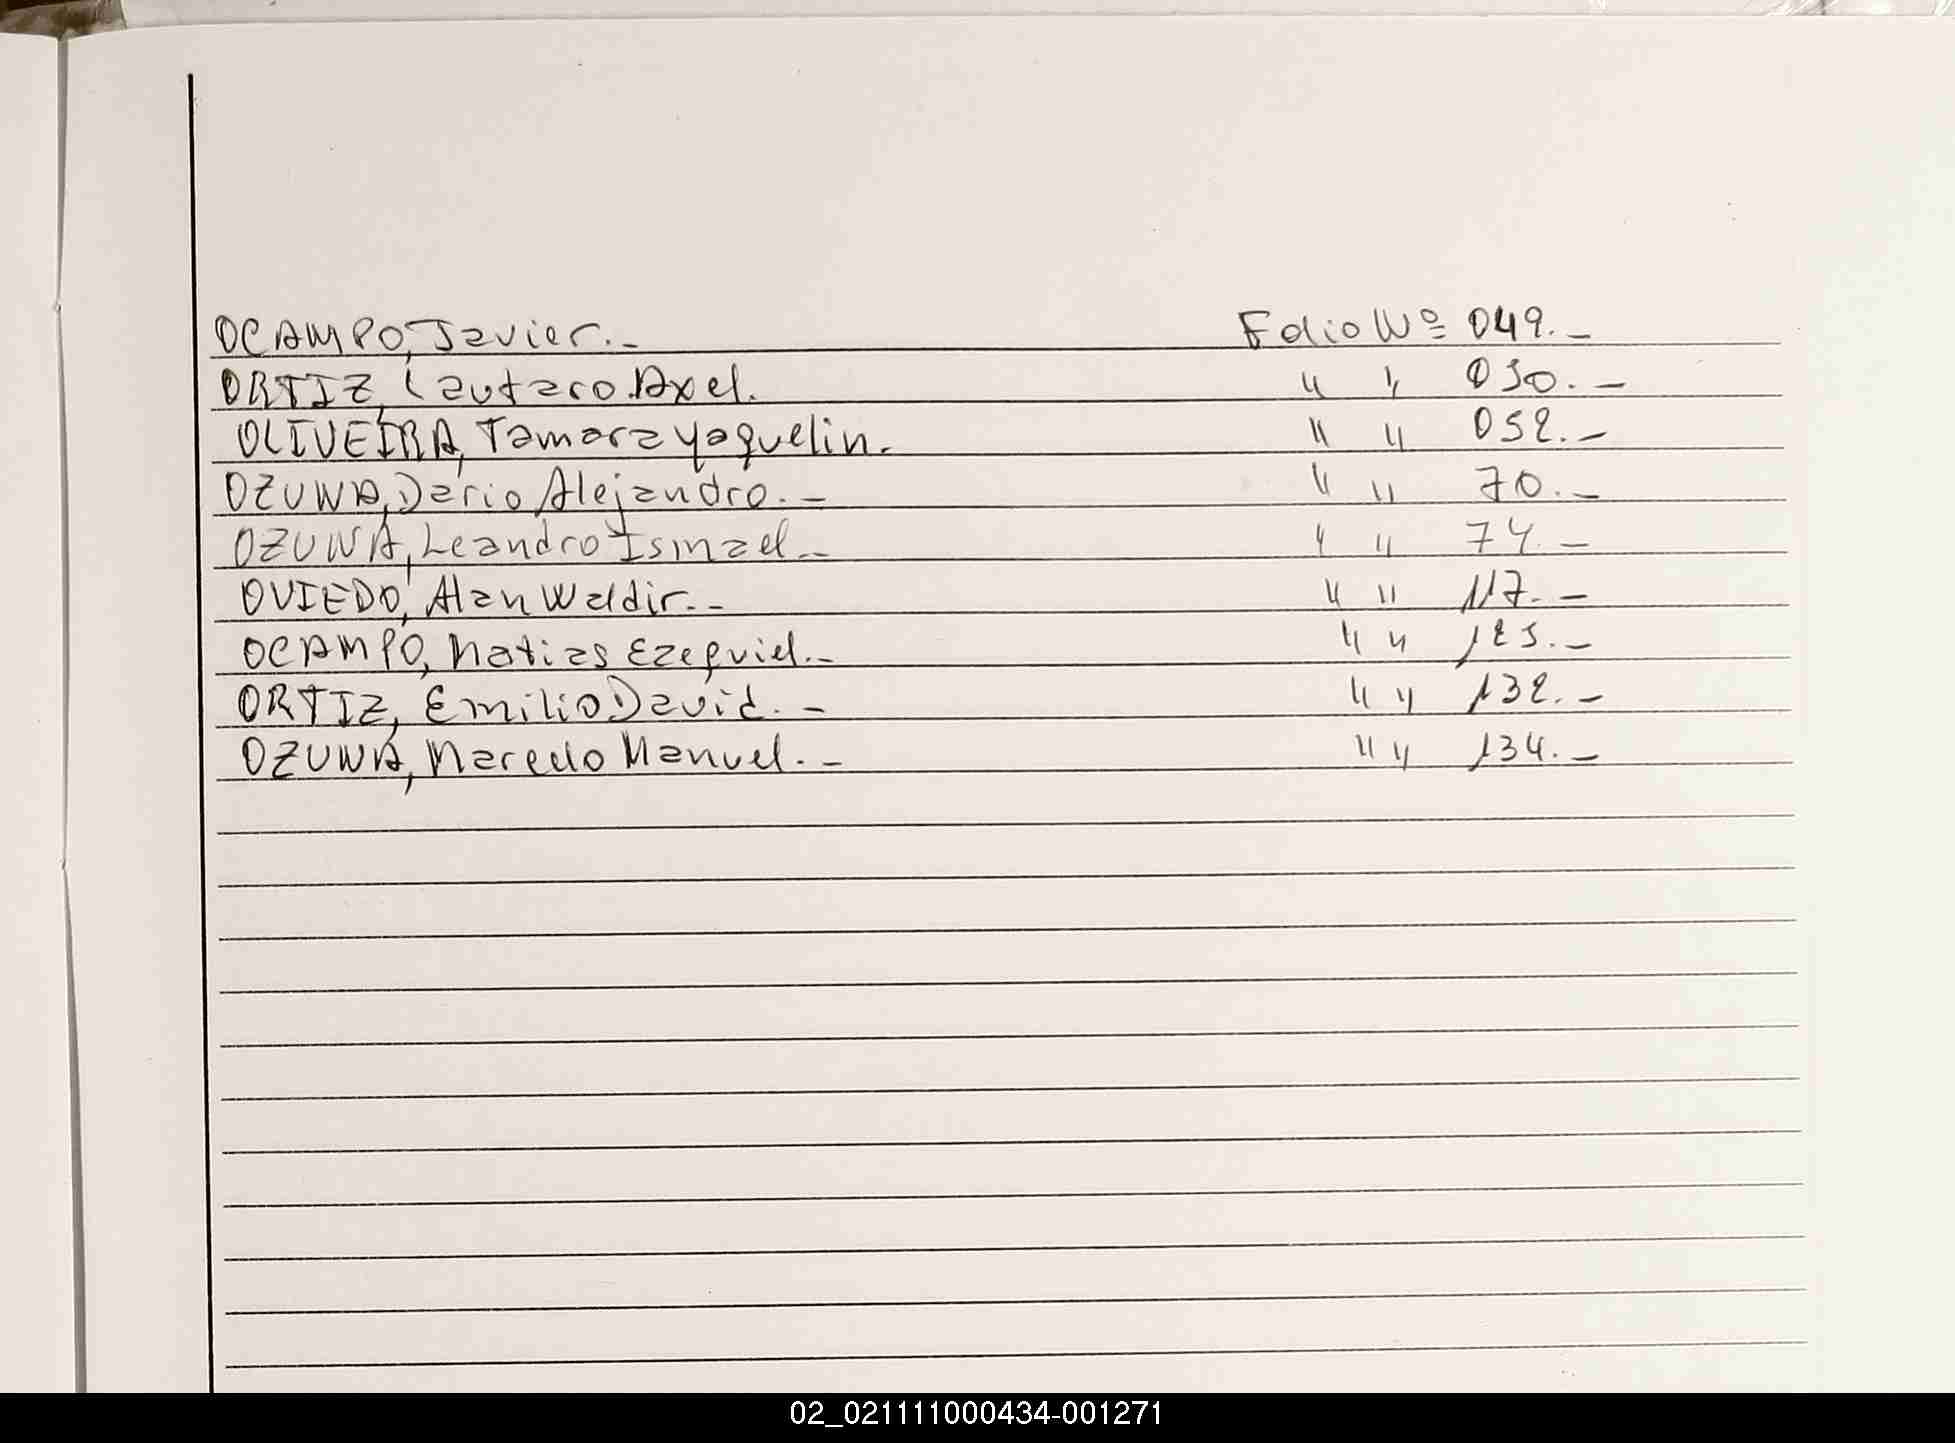 OCAMPO, Javier.- Folio Nº 049.-
ORTIZ, Lautaro Axel. " " 050.-
OLIVEIRA, Tamara Yaquelin. " " 052.-
OZUNA, Dario Alejandro.- " " 70.-
OZUNA, Leandro Ismael.- " " 74.-
OVIEDO, Alan Waldir.- " " 117.-
OCAMPO, Matias Ezequiel.- " " 125.-
ORTIZ, Emilio David.- " " 132.-
OZUNA, Marcelo Manuel.- " " 134.-
02_021111000434-001271